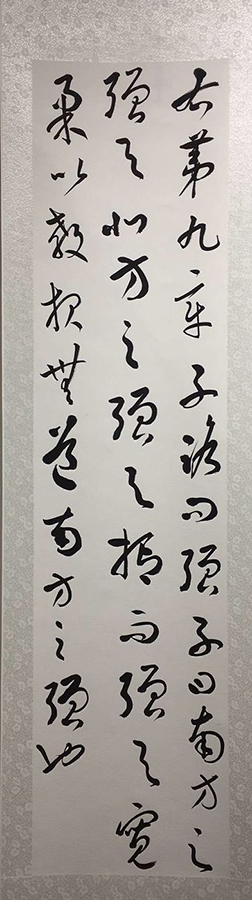 右第九章子路問强子曰南方之
强與北方之强與抑而强與寬
柔以教報無道南方之强也